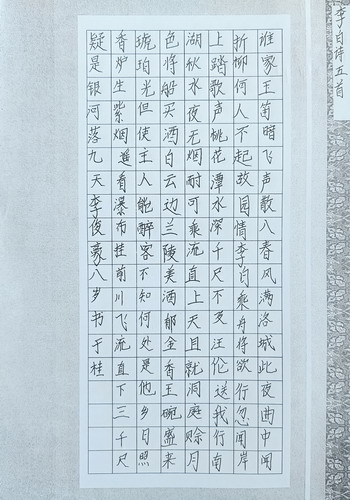 李白诗五首
谁家玉笛暗飞声散入春风满洛城此夜曲中闻
折柳何人不起故园情李白乘舟将欲行忽闻岸
上踏歌声桃花潭水深千尺不及汪伦送我行南
湖秋水夜无烟耐可乘流直上天且就洞庭赊月
色将船买酒白云边兰陵美酒郁金香玉碗盛来
琥珀光但使主人能醉客不知何处是他乡日照
香炉生紫烟遥看瀑布挂前川飞流直下三千尺
疑是银河落九天李俊豪八岁书于桂